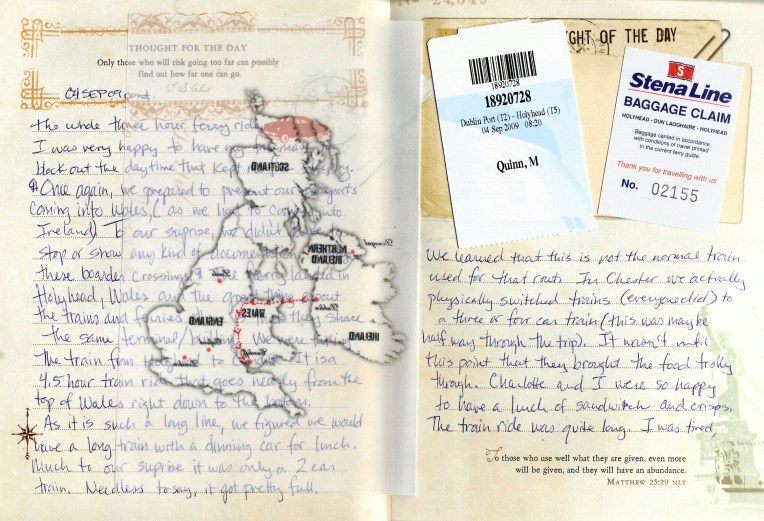 THOUGHT FOR THE DAY
Only those who will risk going too far can possibly
find out how far one can go.
T.S. Eliot
04 SEP 09 cont.
the whole three hour ferry ride
I was very happy to have my
block out the daytime that kept
Once again, we prepared to present our passports
coming into Wales, (as we had to coming into
Ireland) To our suprise, we didn't have to
stop or show any kind of documentation
these boarder crossings. The ferry landed in
Holyhead, Wales and the about
the trains and ferries they share
the same terminal/ We were
the train from to It is a
4.5 hour train ride that goes nearly from the
top of Wales right down to the bottom.
As it is such a long line, we figured we would
have a long train with a dinning car for lunch.
Much to our suprise it was only a 2 car
train. Needless to say, it got pretty full.
SCOTLAND
NORTHERN
IRELAND
IRELAND
WALES
ENGLAND
Dublin
London
GHT OF THE DAY
18920728
18920728
Dublin Port (T2) - Holyhead (T5)
04 Sep 2009 08:20
Quinn, M
S
Stena Line
BAGGAGE CLAIM
HOLYHEAD - DUN LAOGHAIRE - HOLYHEAD
Baggage carried in accordance
with conditions of travel printed
in the current ferry guide.
Thank you for travelling with us
No. 02155
We learned that this is not the normal train
used for that route. In Chester we actually
physically switched trains (everyone did) to
a three or four car train (this was maybe
half way through the trip). It wasn't until
this point that they brought the food trolly
through. Charlotte and I were so happy
to have a lunch of sandwich and crisps.
The train ride was quite long. I was tired,
To those who use well what they are given, even more
will be given, and they will have an abundance.
MATTHEW 25:29 NLT